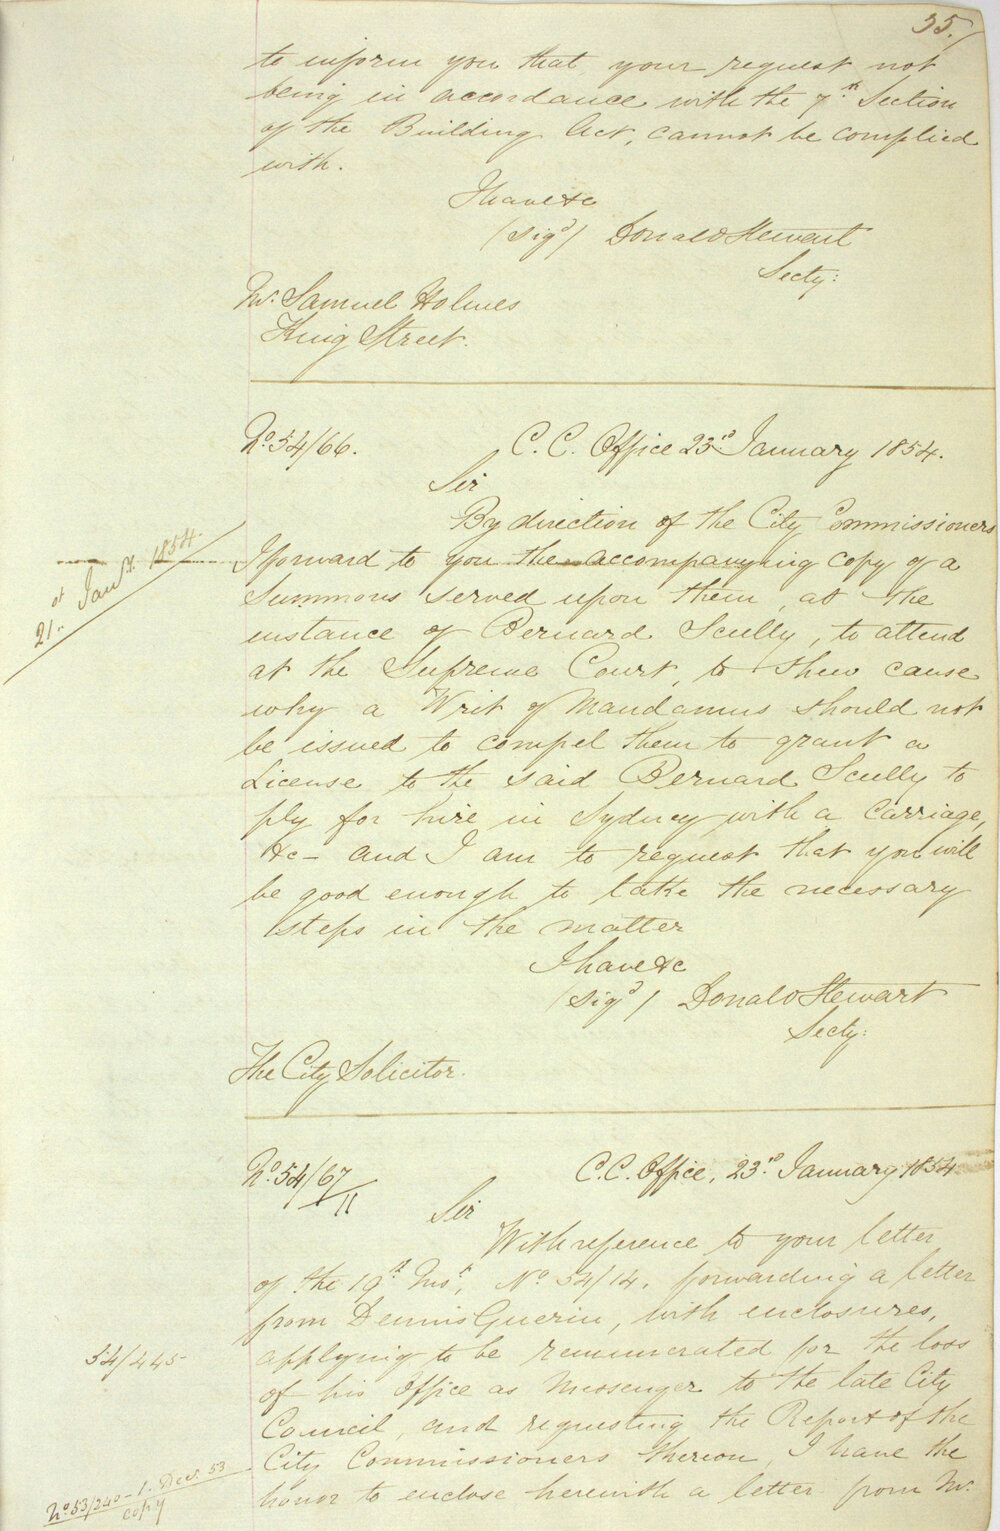 35.
to inform you that your request not
being in accordance with the 7th Section
of the Building Act, cannot be complied
with.
I have &c
(sigd) Donald Stewart
Secty:
Mr. Samuel Holmes
King Street.
No. 54/66.
C. C. Office 23rd January 1854.
Sir
By direction of the City Commissioners
I forward to you the accompanying copy of a
Summons served upon them, at the
instance of Bernard Scully, to attend
at the Supreme Court, to shew cause
why a Writ of Mandamus should not
be issued to compel them to grant a
License to the said Bernard Scully to
ply for hire in Sydney with a Carriage,
&c – and I am to request that you will
be good enough to take the necessary
steps in the matter
I have &c
(sigd) Donald Stewart
Secty:
The City Solicitor.
of
21. Jany. 1854.
No. 54/67
11
C. C. Office, 23rd January 1854
Sir
With reference to your letter
of the 19th Inst, No. 54/14, forwarding a letter
from Dennis Guerin, with enclosures,
applying to be remunerated for the loss
of his Office as Messenger to the late City
Council, and requesting the Report of the
City Commissioners thereon, I have the
honor to enclose herewith a letter from Mr.
54/245
No. 53/240 – 1. Decr. 53
copy